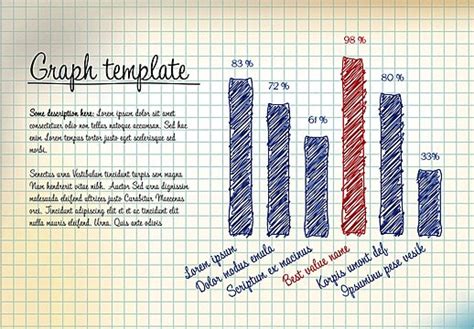 Graph template
Some description here: Lorem ipsum dolor sit amet
consectetuer odio non tellus natoque accumsan. Sed hac
enim Lorem tempus tortor justo eget scelerisque sed
morbi.
Senectus urna Vestibulum tincidunt turpis sem magna
nunc in tincidunt pede. Auctor Sed urna dignissim
malesuada eleifend ultrices justo Curabitur Maecenas
orci. Tincidunt adipiscing elit et montes tincidunt
nulla mauris interdum nonc. Urna Quis ante odivis
83 %
72 %
61 %
98 %
80 %
33%
Lorem ipsum
Dolor modus enula
Scriptum ex macinus
Best value name
Korpis umont def
Ipsuminu pese vesik